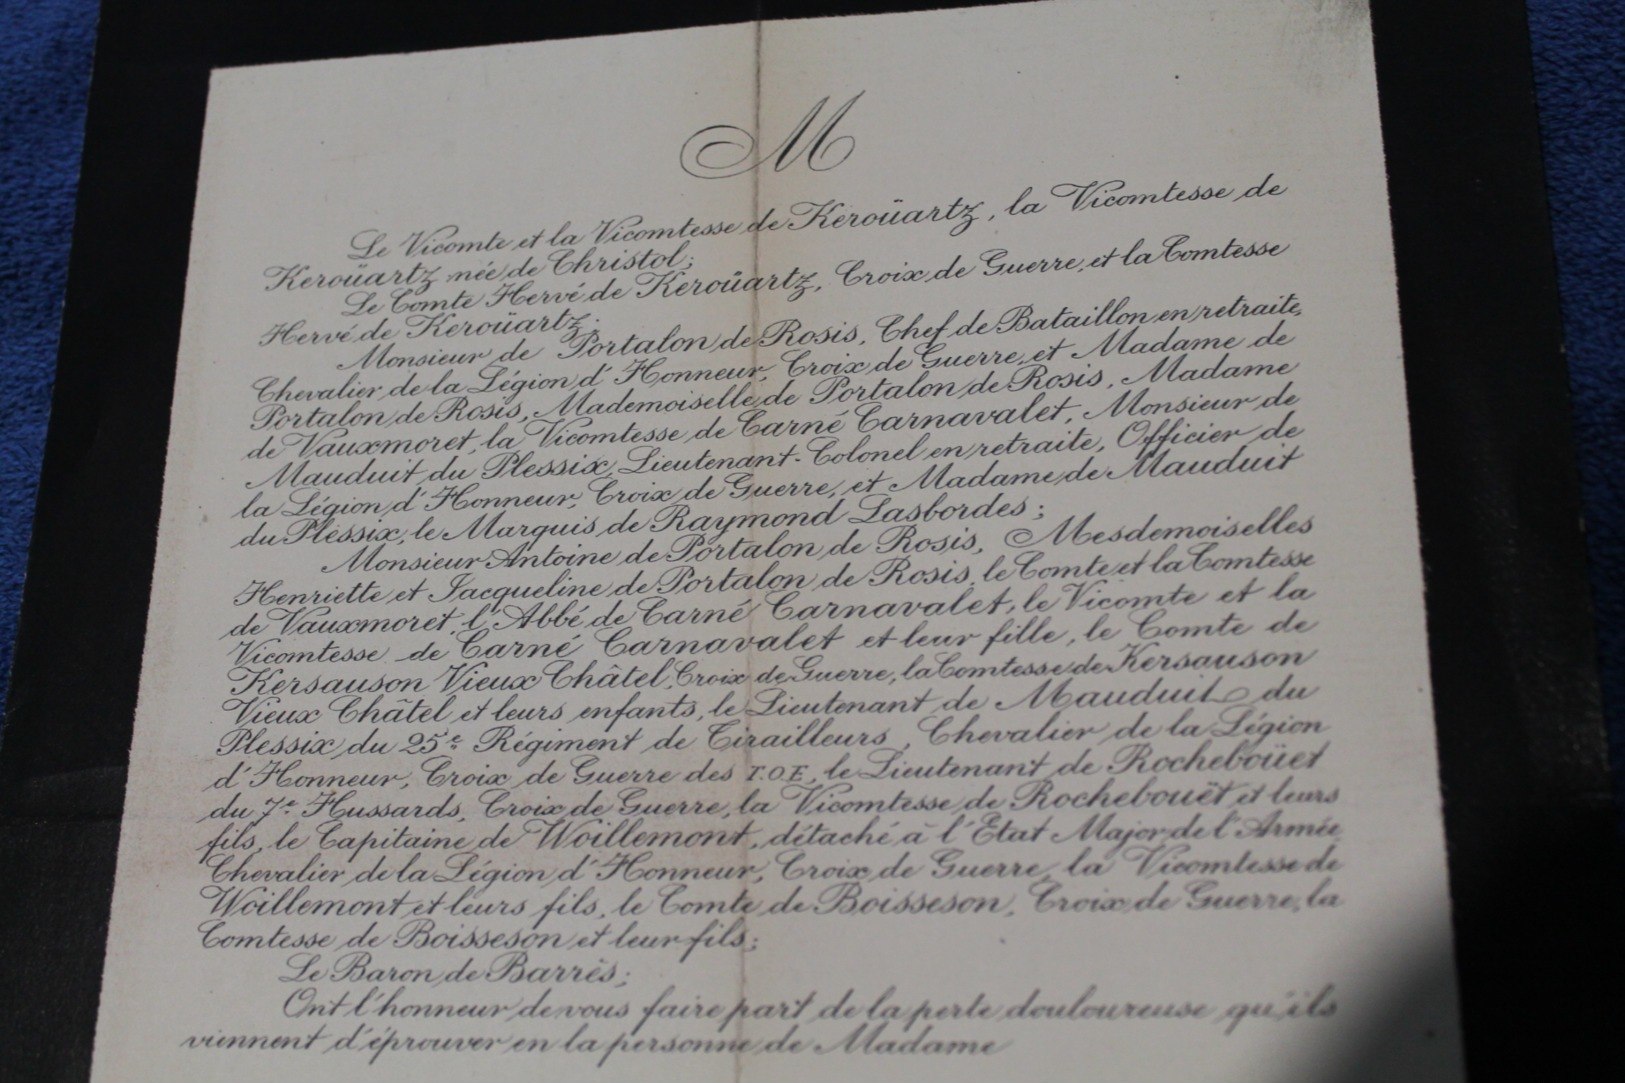 M
Le Vicomte et la Vicomtesse de Keroüartz, la Vicomtesse de
Keroüartz née de Christol;
Le Comte Hervé de Keroüartz, Croix de Guerre, et la Comtesse
Hervé de Keroüartz;
Monsieur de Portalon de Rosis, Chef de Bataillon en retraite,
Chevalier de la Légion d'Honneur, Croix de Guerre, et Madame de
Portalon de Rosis, Mademoiselle de Portalon de Rosis, Madame
de Vauxmoret, la Vicomtesse de Carné Carnavalet, Monsieur de
Mauduit du Plessix, Lieutenant-Colonel en retraite, Officier de
la Légion d'Honneur, Croix de Guerre, et Madame de Mauduit
du Plessix, le Marquis de Raymond Lasbordes;
Monsieur Antoine de Portalon de Rosis, Mesdemoiselles
Henriette et Jacqueline de Portalon de Rosis, le Comte et la Comtesse
de Vauxmoret, l'Abbé de Carné Carnavalet, le Vicomte et la
Vicomtesse de Carné Carnavalet et leur fille, le Comte de
Kersauson Vieux Châtel, Croix de Guerre, la Comtesse de Kersauson
Vieux Châtel et leurs enfants, le Lieutenant de Mauduit du
Plessix du 25e Régiment de Tirailleurs, Chevalier de la Légion
d'Honneur, Croix de Guerre des T.O.E, le Lieutenant de Rochebouët
du 7e Hussards, Croix de Guerre, la Vicomtesse de Rochebouët et leurs
fils, le Capitaine de Woillemont, détaché à l'Etat Major de l'Armée,
Chevalier de la Légion d'Honneur, Croix de Guerre, la Vicomtesse de
Woillemont et leurs fils, le Comte de Boisseson, Croix de Guerre, la
Comtesse de Boisseson et leur fils;
Le Baron de Barrès;
Ont l'honneur de vous faire part de la perte douloureuse qu'ils
viennent d'éprouver en la personne de Madame